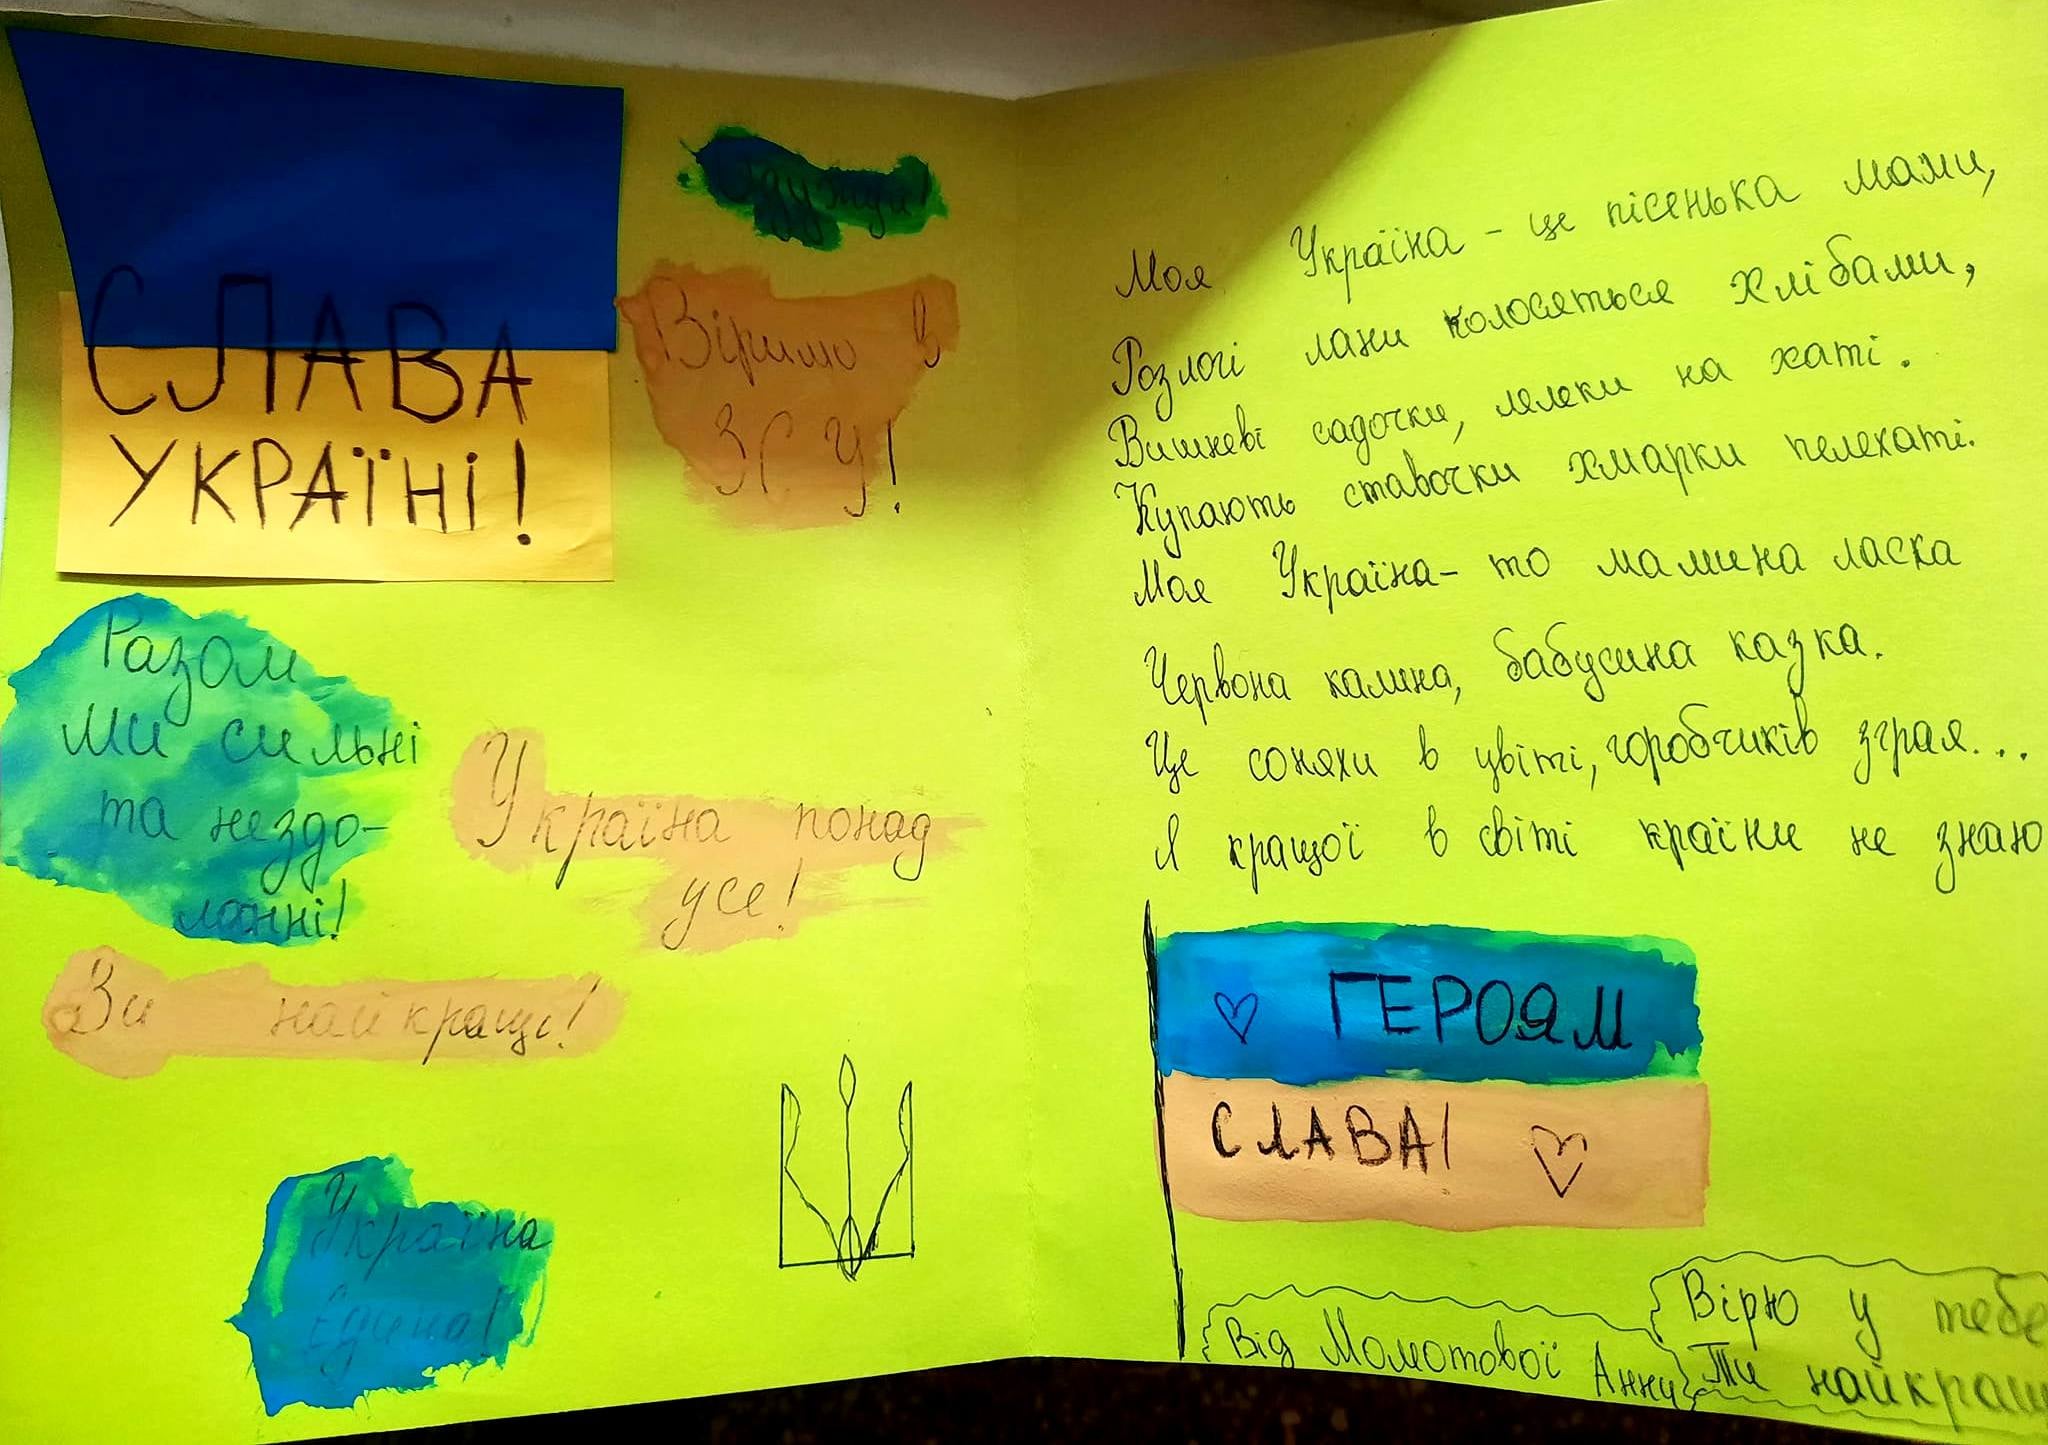 СЛАВА
УКРАЇНІ!
Одужуй!
Віримо в
ЗСУ!
Разом
ми сильні
та нездо-
ланні!
Україна понад
усе!
Ви найкращі!
Україна
Єдина!
Моя Україна - це пісенька мами,
Розлогі лани колосяться хлібами,
Вишневі садочки, лелеки на хаті.
Купають ставочки хмарки пелехаті.
Моя Україна - то мамина ласка
Червона калина, бабусина казка.
Це соняхи в цвіті, горобчиків зграя...
Я кращої в світі країни не знаю
ГЕРОЯМ
СЛАВА!
Від Молотової Анни
Вірю у тебе
Ти найкращ